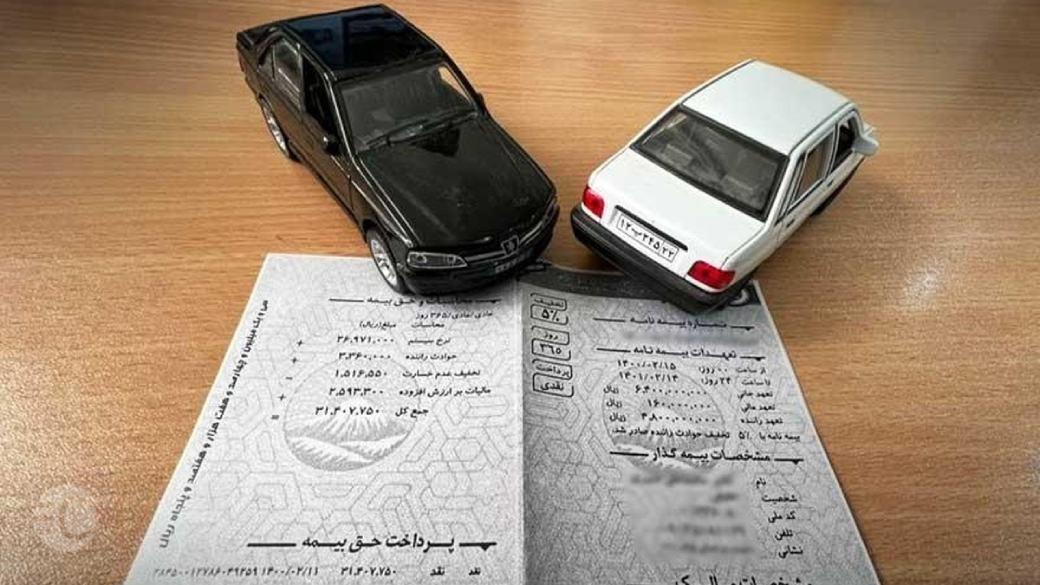 شماره بیمه نامه
تعهدات بیمه نامه
از ساعت ۰۰ روز: ۱۴۰۰/۰۲/۱۵
تا ساعت ۲۴ روز: ۱۴۰۱/۰۲/۱۴
تعهد جانی ۶,۴۰۰,۰۰۰,۰۰۰ ریال
تعهد مالی ۱۶۰,۰۰۰,۰۰۰ ریال
تعهد راننده ۴,۸۰۰,۰۰۰,۰۰۰ ریال
بیمه نامه با ۵٪ تخفیف حوادث راننده صادر شد.
مشخصات بیمه گذار
نام
شخصیت
کد ملی
تلفن
نشانی
تخفیف
۵٪
روز
۳۶۵
پرداخت
نقدی
محاسبات و حق بیمه
عادی/عادی/۳۶۵ روز
محاسبات مبلغ(ریال)
نرخ سیستم ۲۶,۹۷۱,۰۰۰
+ حوادث راننده ۳,۳۶۰,۰۰۰
- تخفیف عدم خسارت ۱,۵۱۶,۵۵۰
+ مالیات بر ارزش افزوده ۲,۵۹۳,۳۰۰
= جمع کل ۳۱,۴۰۷,۷۵۰
سی و یک میلیون و چهارصد و هفت هزار و هفتصد و پنجاه ریال
پرداخت حق بیمه
نقد نقد ۳۱,۴۰۷,۷۵۰ ۱۴۰۰/۰۲/۱۱